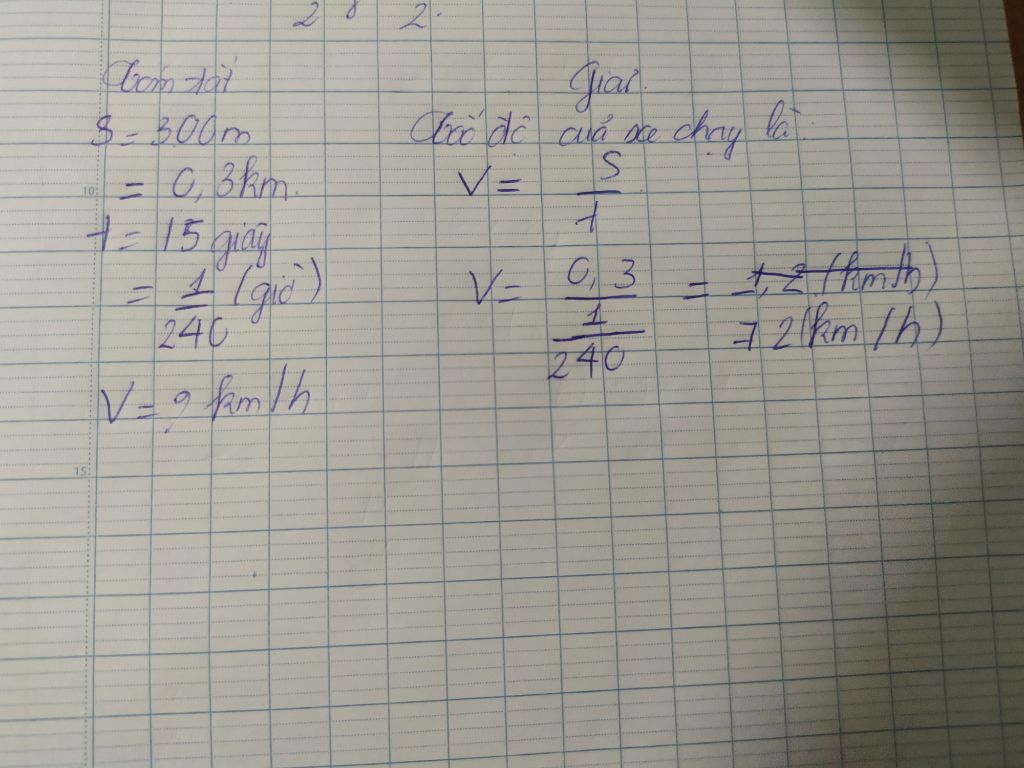 2 8 2.
Tóm tắt
S = 300m
= 0,3km.
t = 15 giây
= 1/240 (giờ)
V = ? km/h
Giải.
Tốc độ của xe chạy là:
V = S/t
V = 0,3 / 1/240 = 1,2 (km/h)
72 (km/h)
10
15